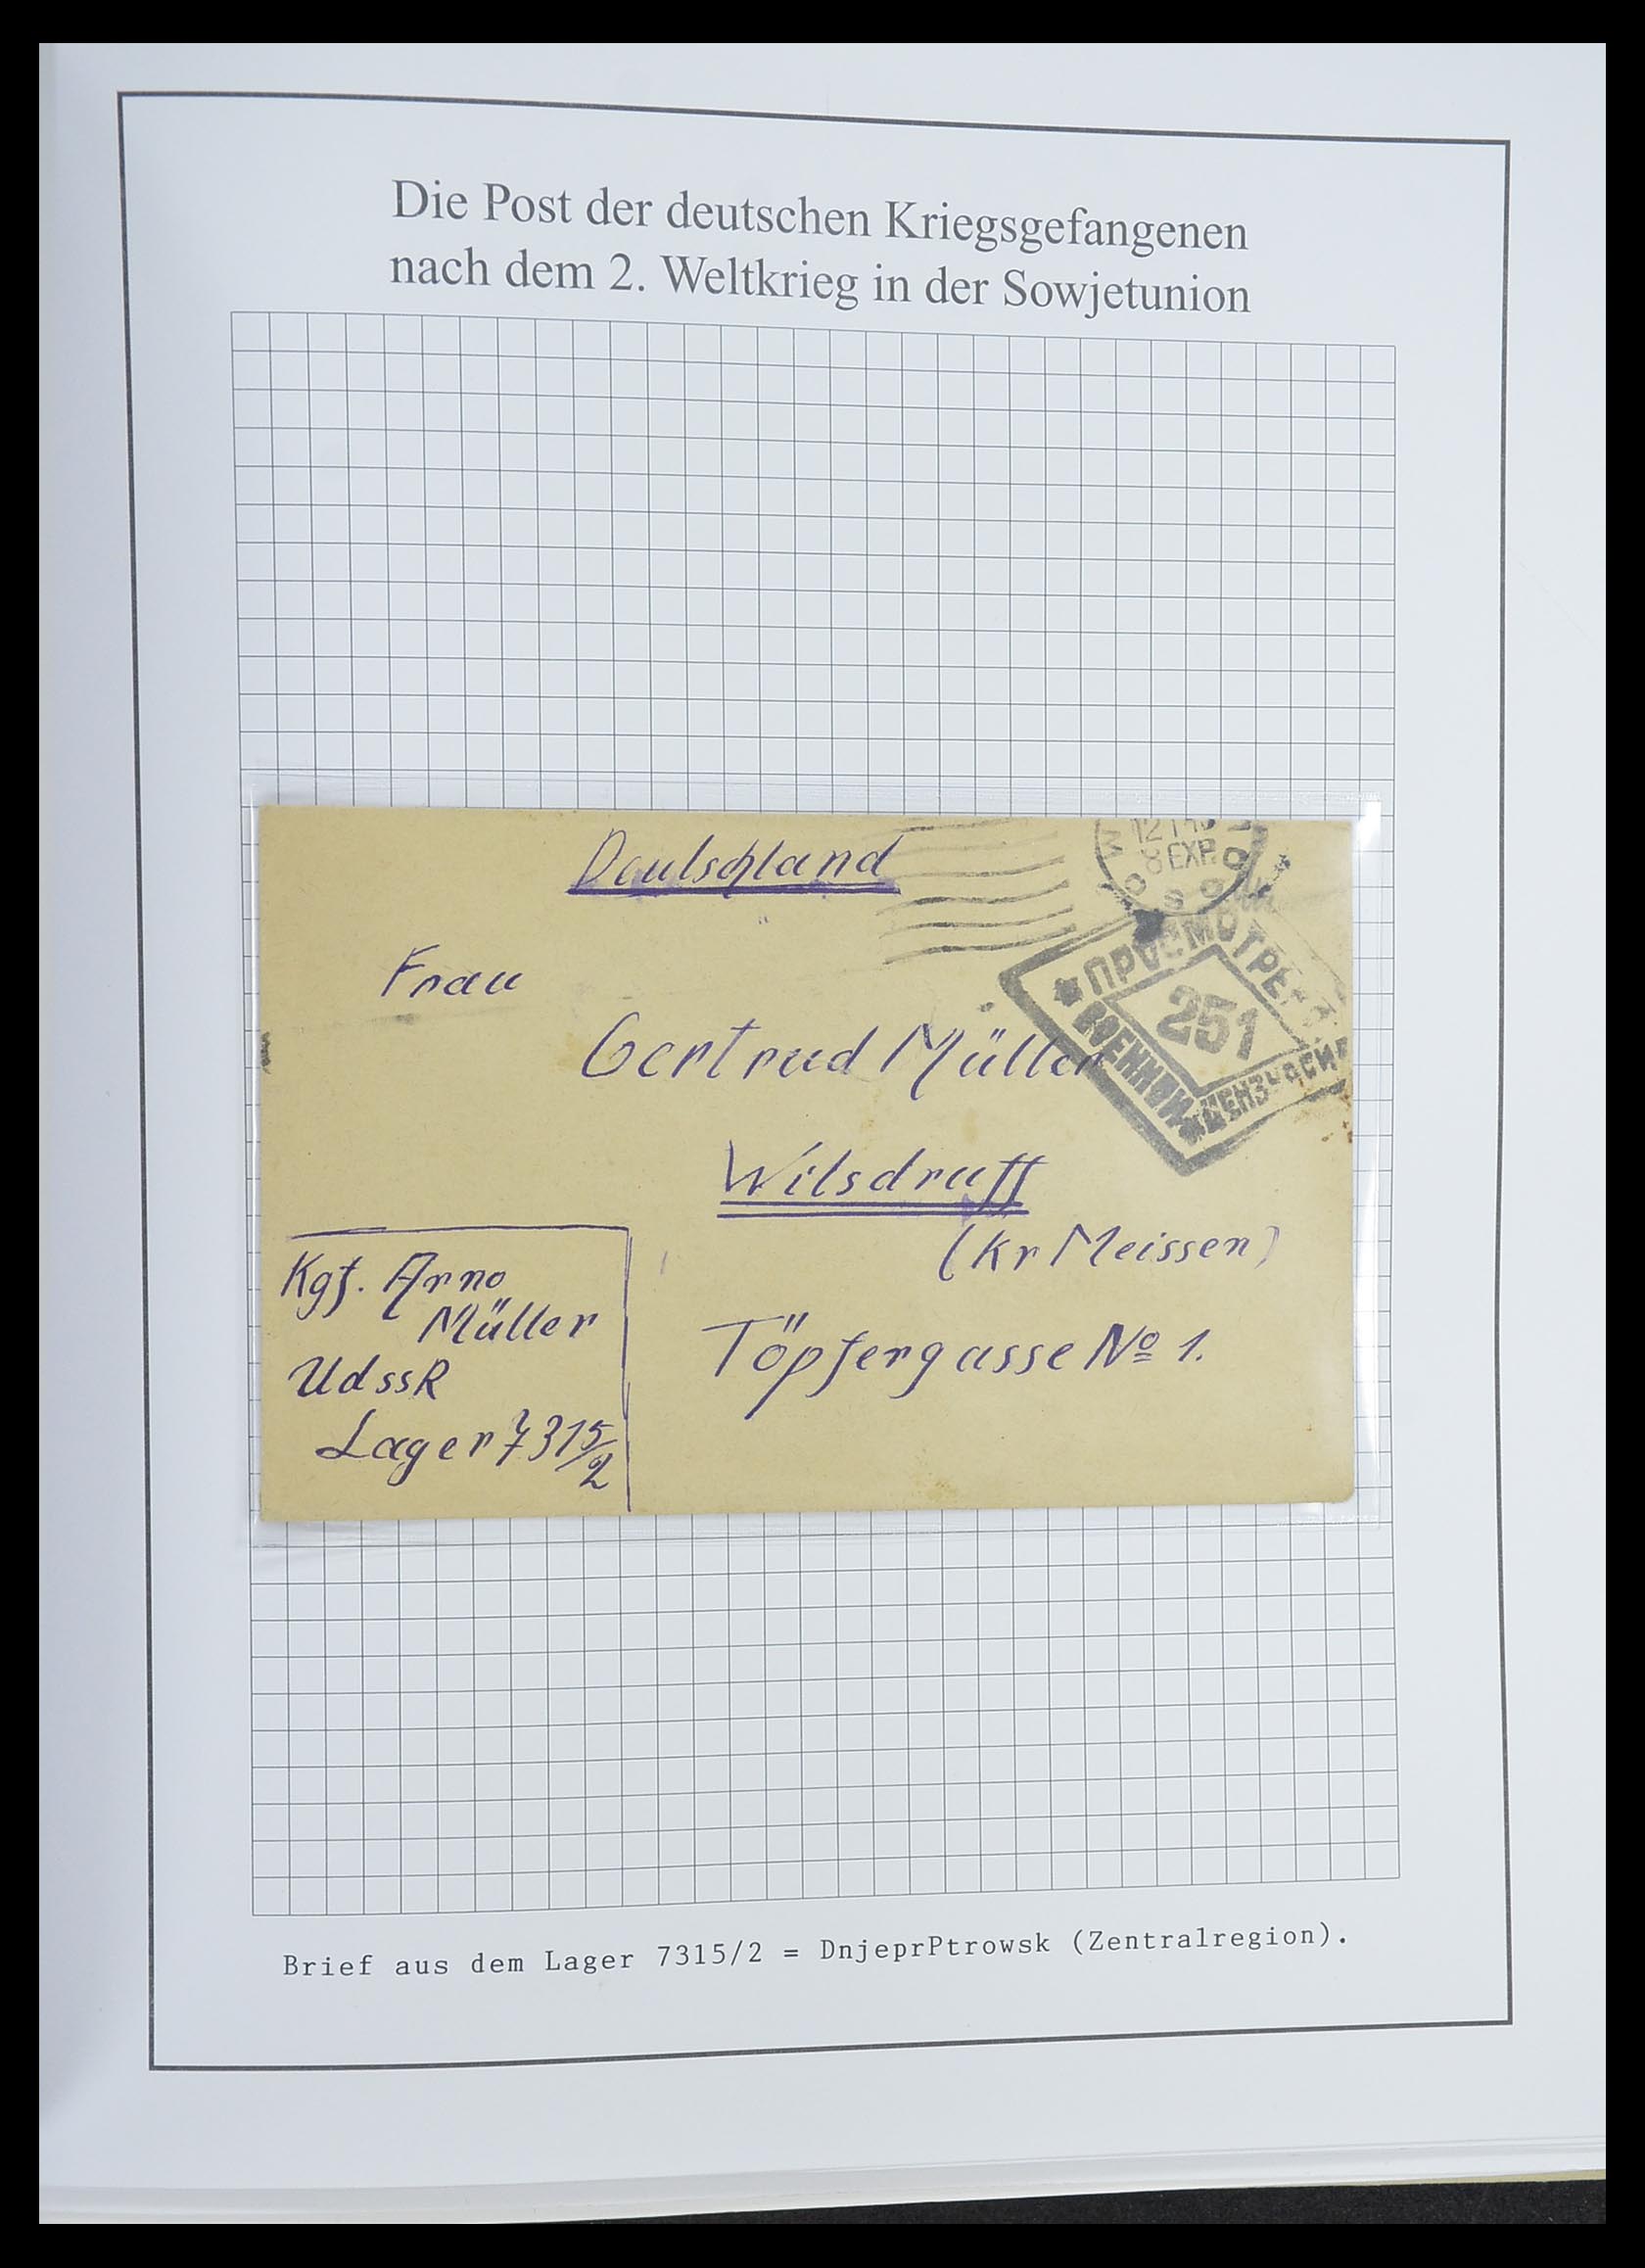 Die Post der deutschen Kriegsgefangenen
nach dem 2. Weltkrieg in der Sowjetunion
Deutschland
8 EXP.
ПРОСМОТРЕНО
251
ВОЕННОЙ
ЦЕНЗУРОЙ
Frau
Gertrud Müller
Wilsdruff
(Kr Meissen)
Töpfergasse № 1.
Kgf. Arno
Müller
UdssR
Lager 7315/2
Brief aus dem Lager 7315/2 = DnjeprPtrowsk (Zentralregion).